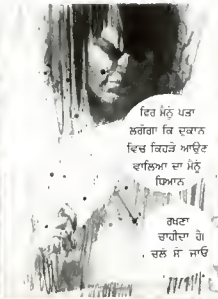 ਫਿਰ ਮੈਨੂੰ ਪਤਾ
ਲਗੇਗਾ ਕਿ ਦੁਕਾਨ
ਵਿਚ ਕਿਹੜੇ ਆਉਣ
ਵਾਲਿਆ ਦਾ ਮੈਨੂੰ
ਧਿਆਨ
ਰਖਣਾ
ਚਾਹੀਦਾ ਹੈ।
ਚਲੋ ਸੌਂ ਜਾਓ